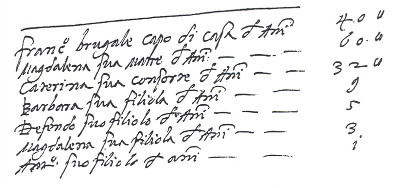 Franc.º brugale capo di casa d'Ani 40 "
Magdalena sua matre d'Ani: — — 60. "
Caterina sua consorte d'Ani — — 32 "
Barbora sua filiola d'Ani — — 9
Defendo suo filiolo d'Ani — — 5
Magdalena sua filiola d'Ani — — 3.
Ant.º suo filiolo d'ani — — — i